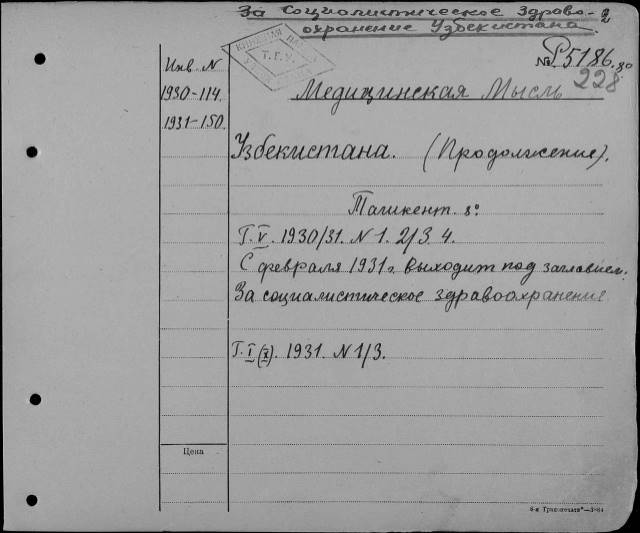 За Социалистическое Здраво- 2
охранение Узбекистана.
Т.Г.У.
№ Р5186.80
228
Инв. N
1930-114.
1931-150.
Медицинская Мысль
Узбекистана. (Продолжение).
Ташкент. 8º
Т. V. 1930/31. N 1. 2/3. 4.
С февраля 1931 г. выходит под заглавием:
За социалистическое здравоохранение
Т. I (X). 1931. N 1/3.
Цена